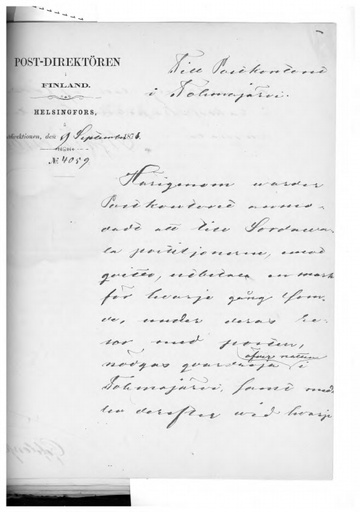 POST-DIREKTÖREN
i
FINLAND.
HELSINGFORS,
Direktionen, den 9 September 1876.
№ 4059
Till Postkontoret
i Tohmajärvi.
Härigenom warder
Postkontoret anmo-
dadt att till Sordawa-
la postiljonerne, mot
qvitto, utbetala en mark
för hvarje gång som
de, under deras re-
sor med posten,
nödgas qvardröja öfver natten i
Tohmajärvi, samt
derefter wid hvarje